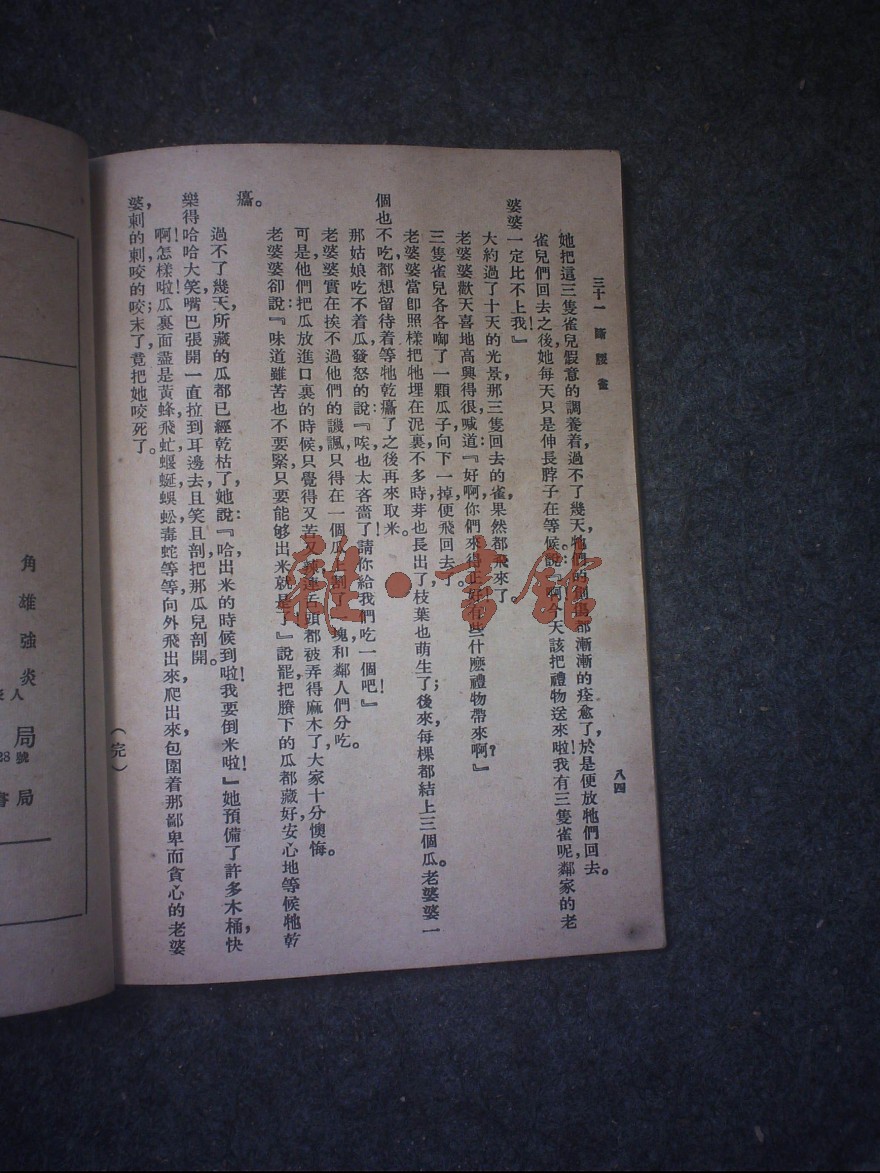 三十一 斷腿雀
八四
她把這三隻雀兒假意的調養着,過不了幾天,牠們的創傷都漸漸的痊愈了,於是便放牠們回去。
雀兒們回去之後,她每天只是伸長脖子在等候說:『啊!今天該把禮物送來啦!我有三隻雀呢,鄰家的老
婆婆一定比不上我!』
大約過了十天的光景,那三隻回去的雀,果然都飛來了。
老婆婆歡天喜地,高興得很,喊道:『好啊,你們來得正好!有些什麽禮物帶來啊?』
三隻雀兒各各啣了一顆瓜子,向下一掉,便飛回去了。
老婆婆當卽照樣把牠埋在泥裏,不多時,芽也長出了,枝葉也萌生了;後來,每棵都結上三個瓜。老婆婆一
個也不吃,都想留待着等牠乾癟了之後,再來取米。
那姑娘吃不着瓜,發怒的說:『唉!也太吝嗇了,請你給我們吃一個吧!』
老婆婆實在挨不過他們的譏諷,只得在一個瓜上割了一塊,和鄰人們分吃。
可是,他們把瓜放進口裏的時候,只覺得又苦又辣,連舌頭都被弄得麻木了,大家十分懊悔。
老婆婆卻說:『味道雖苦也不要緊,只要能够出米就是了。』說罷,把賸下的瓜都藏好,安心地等候牠乾
癟。
過不了幾天,所藏的瓜都已經乾枯了,她說:『哈!出米的時候到啦!我要倒米啦!』她預備了許多木桶,快
樂得哈哈大笑,嘴巴張開一直拉到耳邊去,且笑且剖,把那瓜兒剖開。
啊!怎樣啦!瓜裏面盡是黃蜂,飛虻,蝘蜒,蜈蚣,毒蛇等等,向外飛出來,爬出來,包圍着那鄙卑而貪心的老婆
婆,刺的刺,咬的咬;末了,竟把她咬死了。
(完)
角
雄
強
炎
人
局
28號
書局
雜·書館